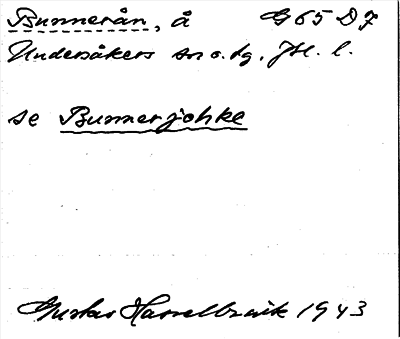 Bunnerån, å G65 D7
Undersåkers sn o. tg, Jtl. l.
se Bunnerjohke
Gustav Hasselbrink 1943